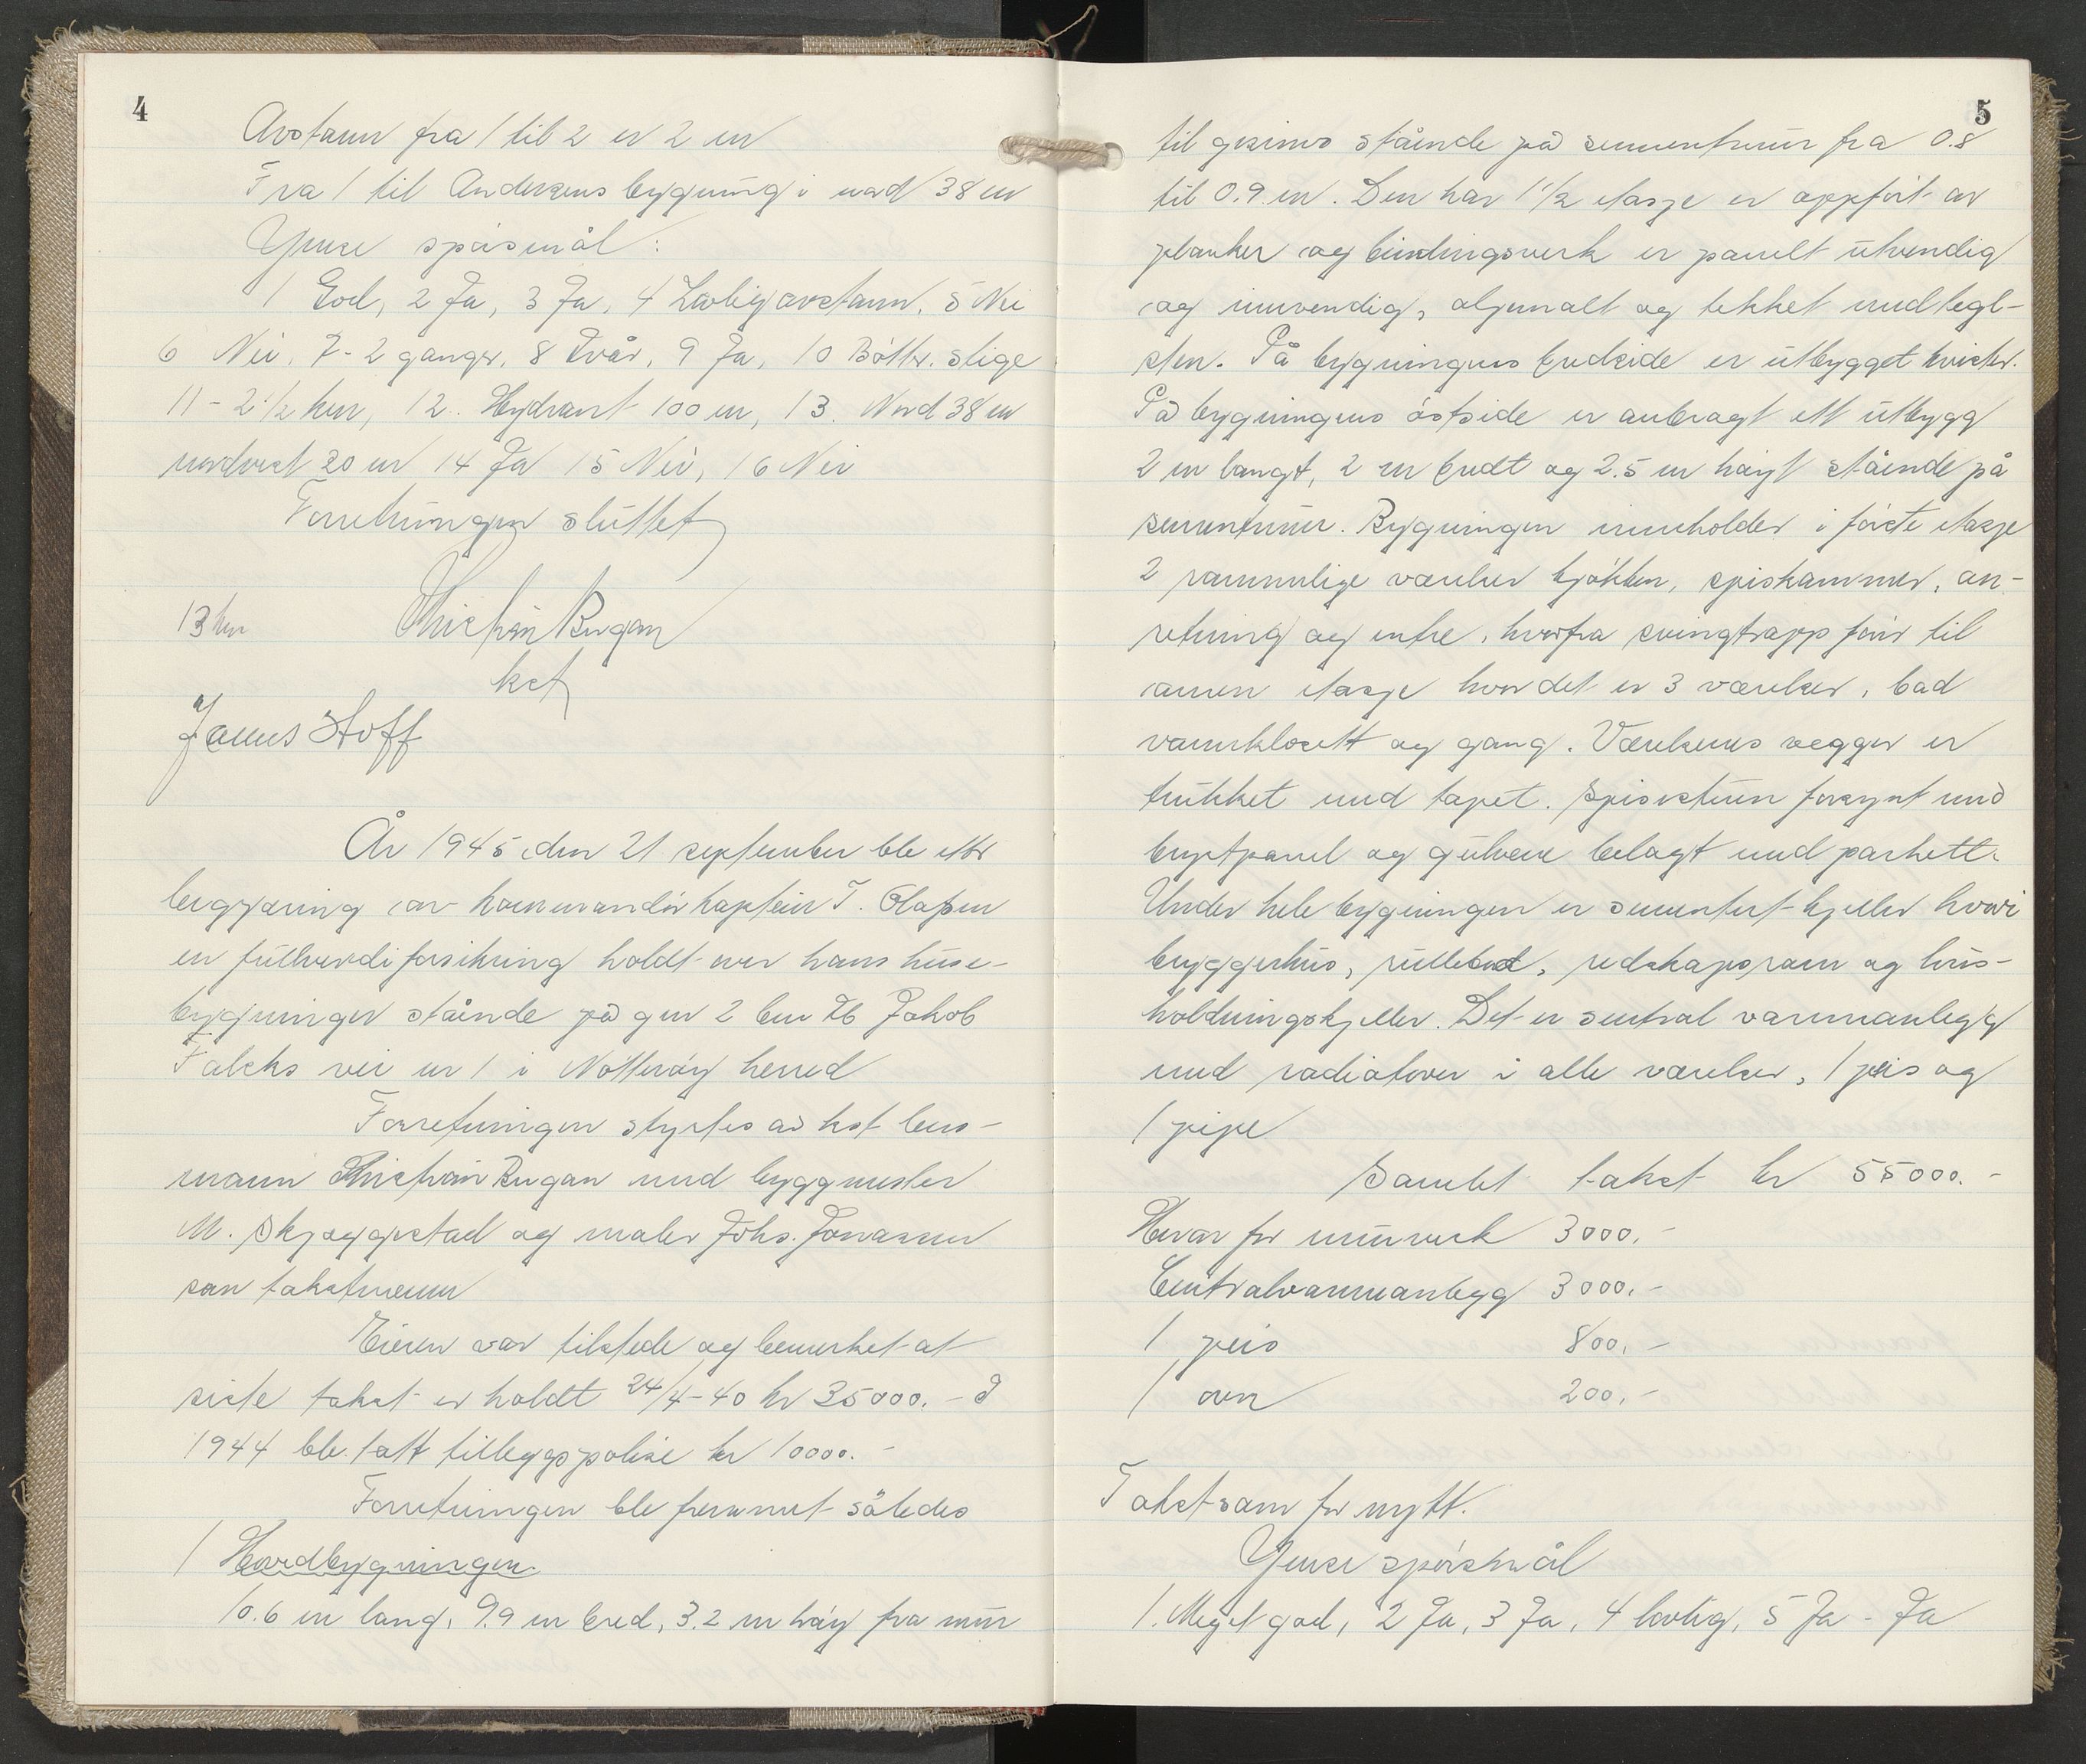 4
Avstann fra 1 til 2 er 2 m
Fra 1 til Andersens bygning i nord 38 m
Ymse spörsmål:
1 God, 2 Ja, 3 Ja, 4 Lovlig avstann, 5 Nei
6 Nei, 7 - 2 ganger, 8 Tvår, 9 Ja, 10 Bötter, stige
11 - 2 1/2 km, 12. Hydrant 100 m, 13. Nord 38 m
nordvest 20 m 14 Ja 15 Nei, 16 Nei
Forretningen sluttet
13 km Kristian Bugan
kst
James Hoff
År 1945 den 21 september ble etter
begjæring av kommandörkaptein T. Olafsen
en fullverdiforsikring holdt over hans huse-
bygninger stående på gnr 2 bnr 76 Jakob
Falcks vei nr 1 i Nötteröy herred
Forretningen styrtes av kst lens-
mann Kristian Bugan med byggmester
M. Skjeggestad og maler Johs. Jonassen
som takstmenn
Eieren var tilstede og bemerket at
siste takst er holdt 24/4-40 kr 35000.- I
1944 ble tatt tilleggspolise kr 10000.-
Forretningen ble fremmet således
1 Hovedbygningen
10.6 m lang, 9.9 m bred, 3.2 m höy fra mur
5
til gesims stående på sementmur fra 0.8
til 0.9 m. Den har 1 1/2 etasje er oppfört av
planker og bindingsverk er panelt utvendig
og innvendig, oljemalt og tekket med tegl-
sten. På bygningens bredside er utbygget kvister.
På bygningens östside er anbragt ett utbygg
2 m langt, 2 m bredt og 2.5 m höyt stående på
sementmur. Bygningen inneholder i förste etasje
2 rommelige værelser kjökken, spiskammer, an-
retning og entre, hvorfra svingtrapp förer til
annen etasje hvor det er 3 værelser, bad
vannklosett og gang. Værelsenes vegger er
trukket med tapet. Spisestuen forsynt med
brystpanel og gulvene belagt med parkett.
Under hele bygningen er sementert kjeller hvori
bryggerhus, rullebod, redskapsrom og hus-
holdningskjeller. Det er sentral varmanlegg
med radiatorer i alle værelser, 1 peis og
1 pipe
Samlet takst kr 55000.-
Herav for murverk 3000.-
Centralvarmeanlegg 3000.-
1 peis 800.-
1 ovn 200.-
Takst som for nytt.
Ymse spörsmål
1. Meget god, 2 Ja, 3 Ja, 4 lovlig, 5 Ja - Ja